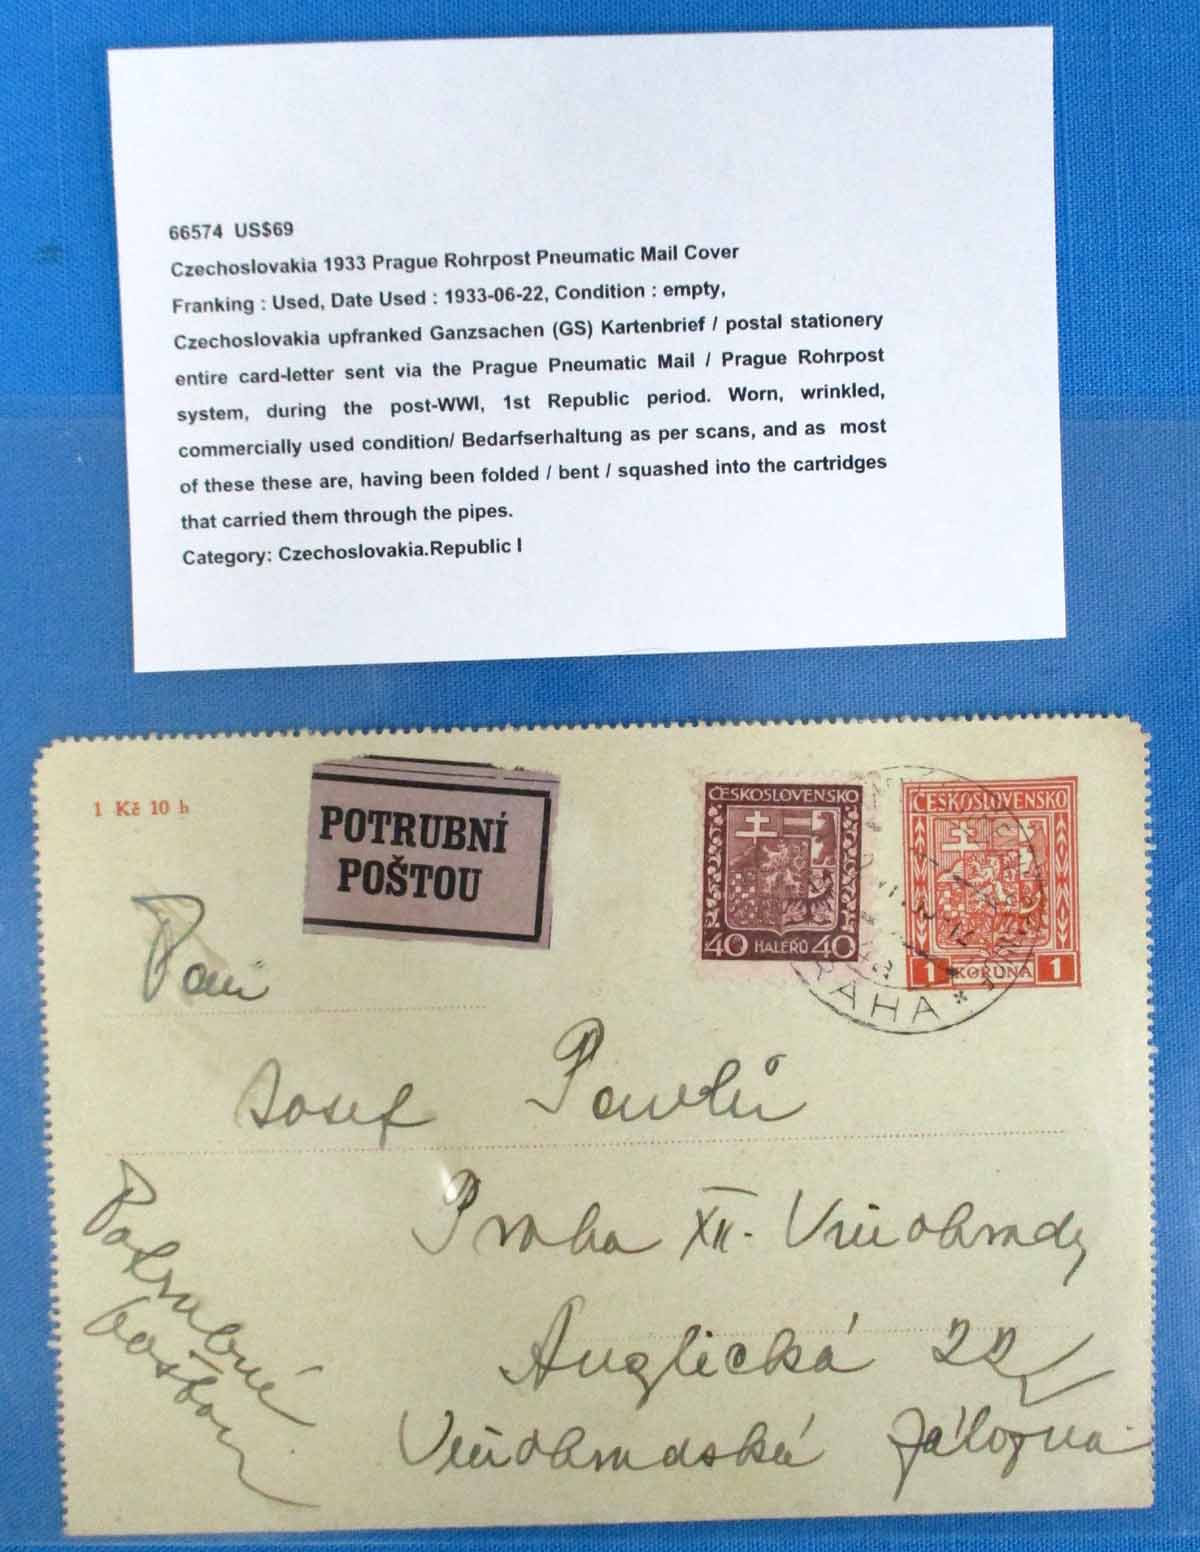 66574 US$69
Czechoslovakia 1933 Prague Rohrpost Pneumatic Mail Cover
Franking : Used, Date Used : 1933-06-22, Condition : empty,
Czechoslovakia upfranked Ganzsachen (GS) Kartenbrief / postal stationery
entire card-letter sent via the Prague Pneumatic Mail / Prague Rohrpost
system, during the post-WWI, 1st Republic period. Worn, wrinkled,
commercially used condition/ Bedarfserhaltung as per scans, and as most
of these these are, having been folded / bent / squashed into the cartridges
that carried them through the pipes.
Category: Czechoslovakia.Republic I
1 Kč 10 h
POTRUBNÍ
POŠTOU
ČESKOSLOVENSKO
40 HALÉŘŮ 40
ČESKOSLOVENSKO
1 KORUNA 1
PRAHA
Pan
Josef Pavlů
Praha XII. Vinohrady
Anglická 22
Vinohradská záložna
Potrubní
poštou